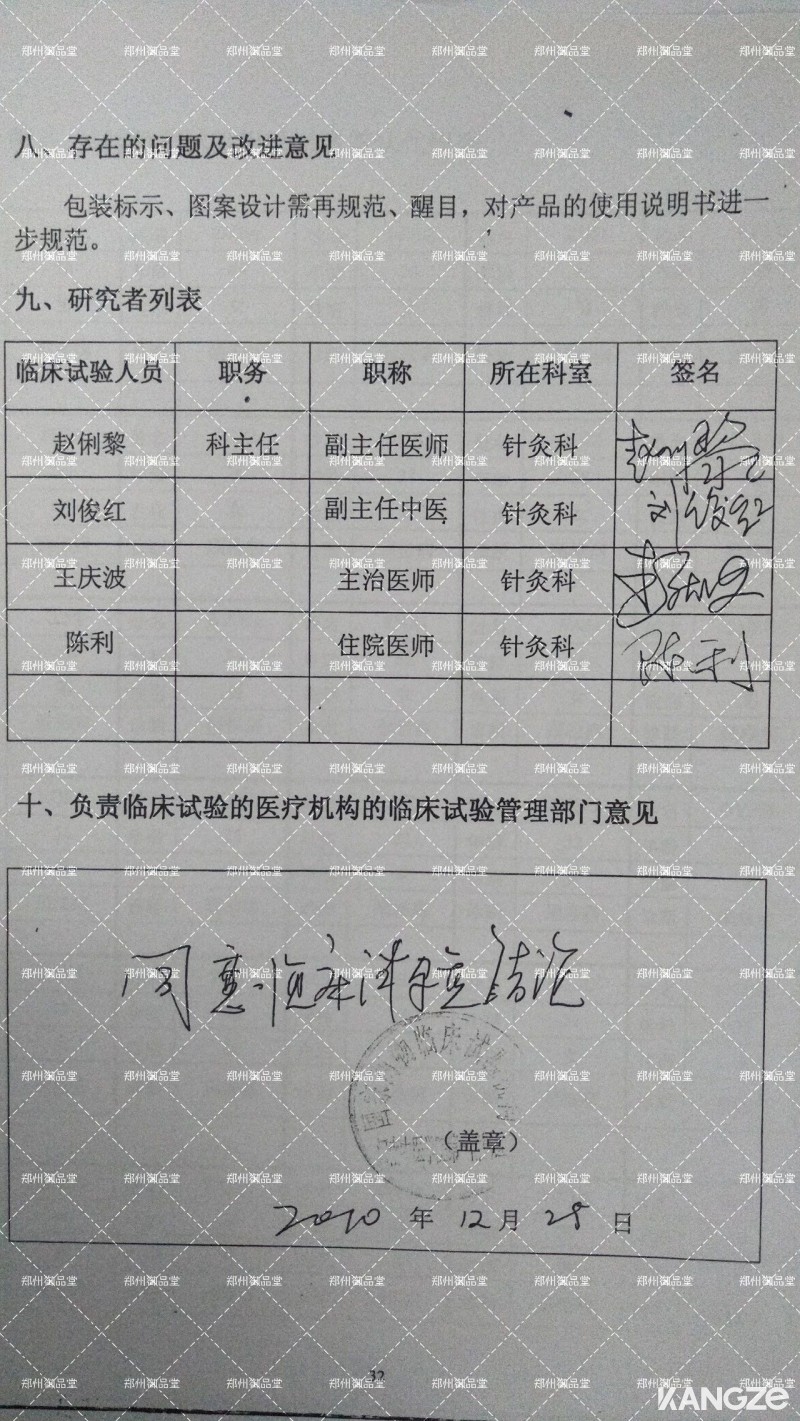 八、存在的问题及改进意见
包装标示、图案设计需再规范、醒目，对产品的使用说明书进一
步规范。
九、研究者列表
临床试验人员 职务 职称 所在科室 签名
赵俐黎 科主任 副主任医师 针灸科
刘俊红 副主任中医 针灸科 刘俊红
王庆波 主治医师 针灸科
陈利 住院医师 针灸科 陈利
十、负责临床试验的医疗机构的临床试验管理部门意见
同意临床试验结论
（盖章）
2010 年 12 月 28 日
32
郑州御品堂
KANGZE